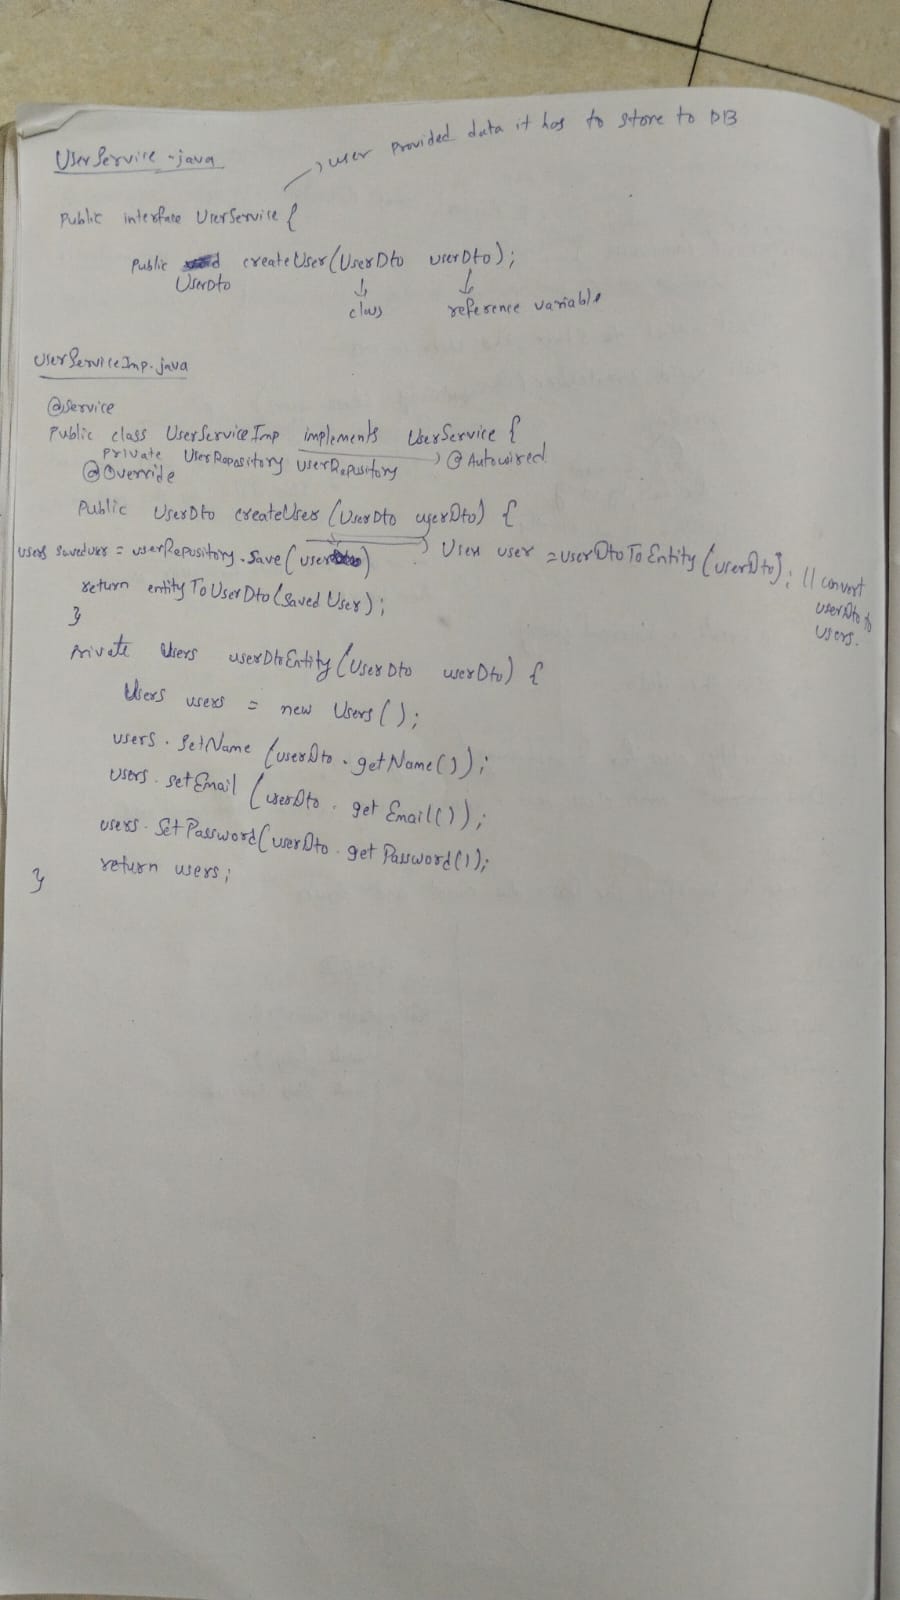 UserService.java
→ user provided data it has to store to DB
Public interface UserService {
Public createUser(UserDto userDto);
UserDto
class
reference variable
UserServiceImp.java
@Service
Public class UserServiceImp implements UserService {
private UserRepository userRepository
→ @Autowired
@Override
Public UserDto createUser (UserDto userDto) {
→ Users user = userDtoToEntity (userDto); // convert
userDto to
users.
users = userRepository.save(user)
return entityToUserDto(saved User);
}
private Users userDtoEntity (UserDto userDto) {
Users users = new Users();
users.setName (userDto.getName());
users.setEmail (userDto.getEmail());
users.SetPassword(userDto.getPassword());
return users;
}